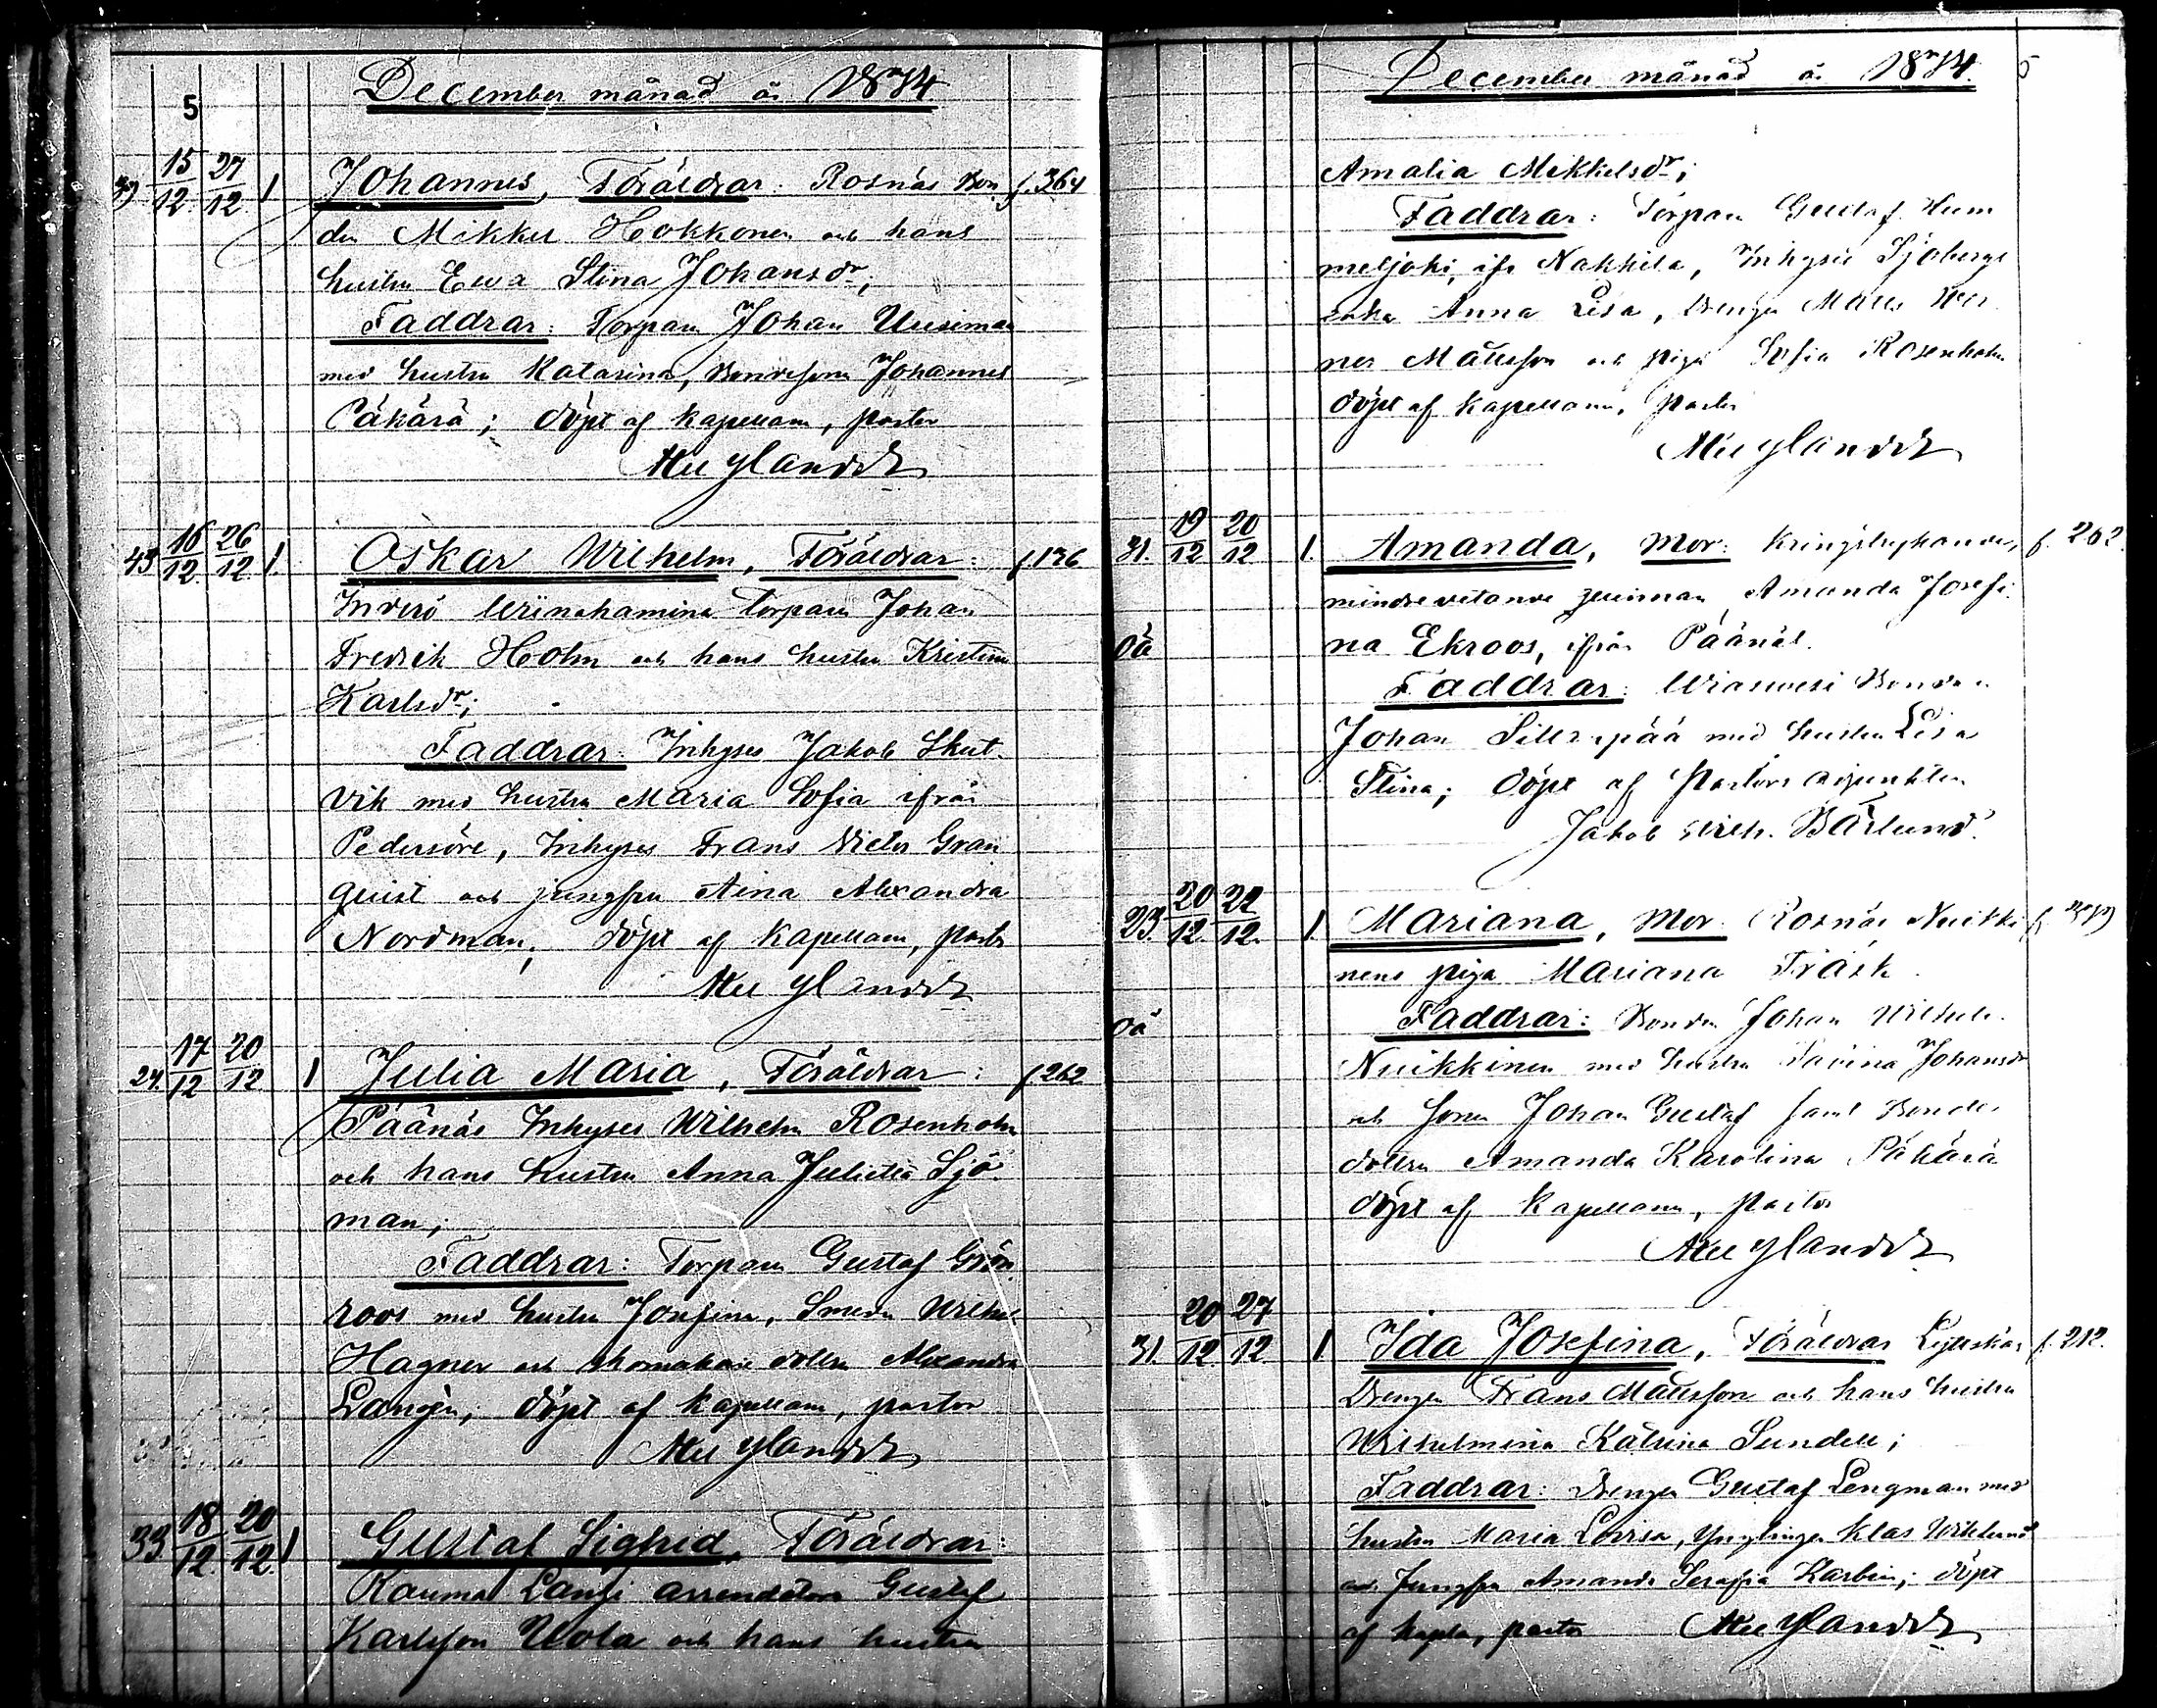 5
December månad år 1874
39 15/12 27/12 1 Johannes, Föräldrar: Rosnäs Bon f. 364
den Mikkel Hokkonen och hans
hustru Ewa Stina Johansdr;
Faddrar: Torparn Johan Uusimaa
med hustru Katarina, Bondesonen Johannes
Päkärä; döpt af kapellanen, pastor
Nylander
43 16/12 26/12 1. Oskar Wilhelm, Föräldrar: f. 136
Inderö Wiinahamina torparn Johan
Fredrik Holm och hans hustru Kristina
Karlsdr;
Faddrar: Inhyses Jakob Skut-
vik med hustru Maria Sofia ifrån
Pedersöre, Inhyses Frans Victor Gran
quist och jungfru Aina Alexandra
Nordman; döpt af kapellanen, pastor
Nylander
27. 17/12 20/12 1 Julia Maria, Föräldrar: f 262
Päänäs Inhyses Wilhelm Rosenholm
och hans hustru Anna Julietta Sjö-
man;
Faddrar: Torparn Gustaf Grön
roos med hustru Josefina, Smeden Wilhel
Hagner och skomakare dottren Alexandra
Langén; döpt af kapellanen, pastor
Nylander
33 18/12 20/12 1 Gustaf Sigfrid, Föräldrar:
Rauma Lanfi arrendatorn Gustaf
Karlsson Uola och hans hustru
December månad år 1874. 5
Amalia Mikkelsdr;
Faddrar: Torparn Gustaf Hum
meljoki, ifr Nakkila, Inhyses Sjöbergs
enka Anna Lisa, Drengen Matts Wer
ner Mattsson och pigan Sofia Rosenholm
döpt af kapellanen, pastor
Nylander
31. 19/12 20/12 1. Amanda, Mor: kringstrykande, f. 262.
mindre vetande qvinnan Amanda Josefi-
oä na Ekroos, ifrån Päänäs.
Faddrar: Wiasvesi Bonden
Johan Sillanpää med hustru Lisa
Stina; döpt af Pastors adjunkten
Jakob Wilh. Bärlund.
23. 20/12 22/12 1. Mariana, Mor: Rosnäs Nuikki f. 379
nens piga Mariana Träsk.
oä Faddrar: Bonden Johan Wilhelm
Nuikkinen med hustru Savina Johansdr
och sonen Johan Gustaf samt Bonde-
dottren Amanda Karolina Päkärä
döpt af kapellanen, pastor
Nylander
31. 20/12 27/12 1 Ida Josefina, Föräldrar Lyttskär f. 212.
Drengen Frans Mattsson och hans hustru
Wilhelmina Katrina Sundell;
Faddrar: Drengen Gustaf Lengman med
hustru Maria Lovisa, Ynglingen Klas Wiklund
och Jungfru Amanda Serafia Karlin; döpt
af kapln, pastor Nylander